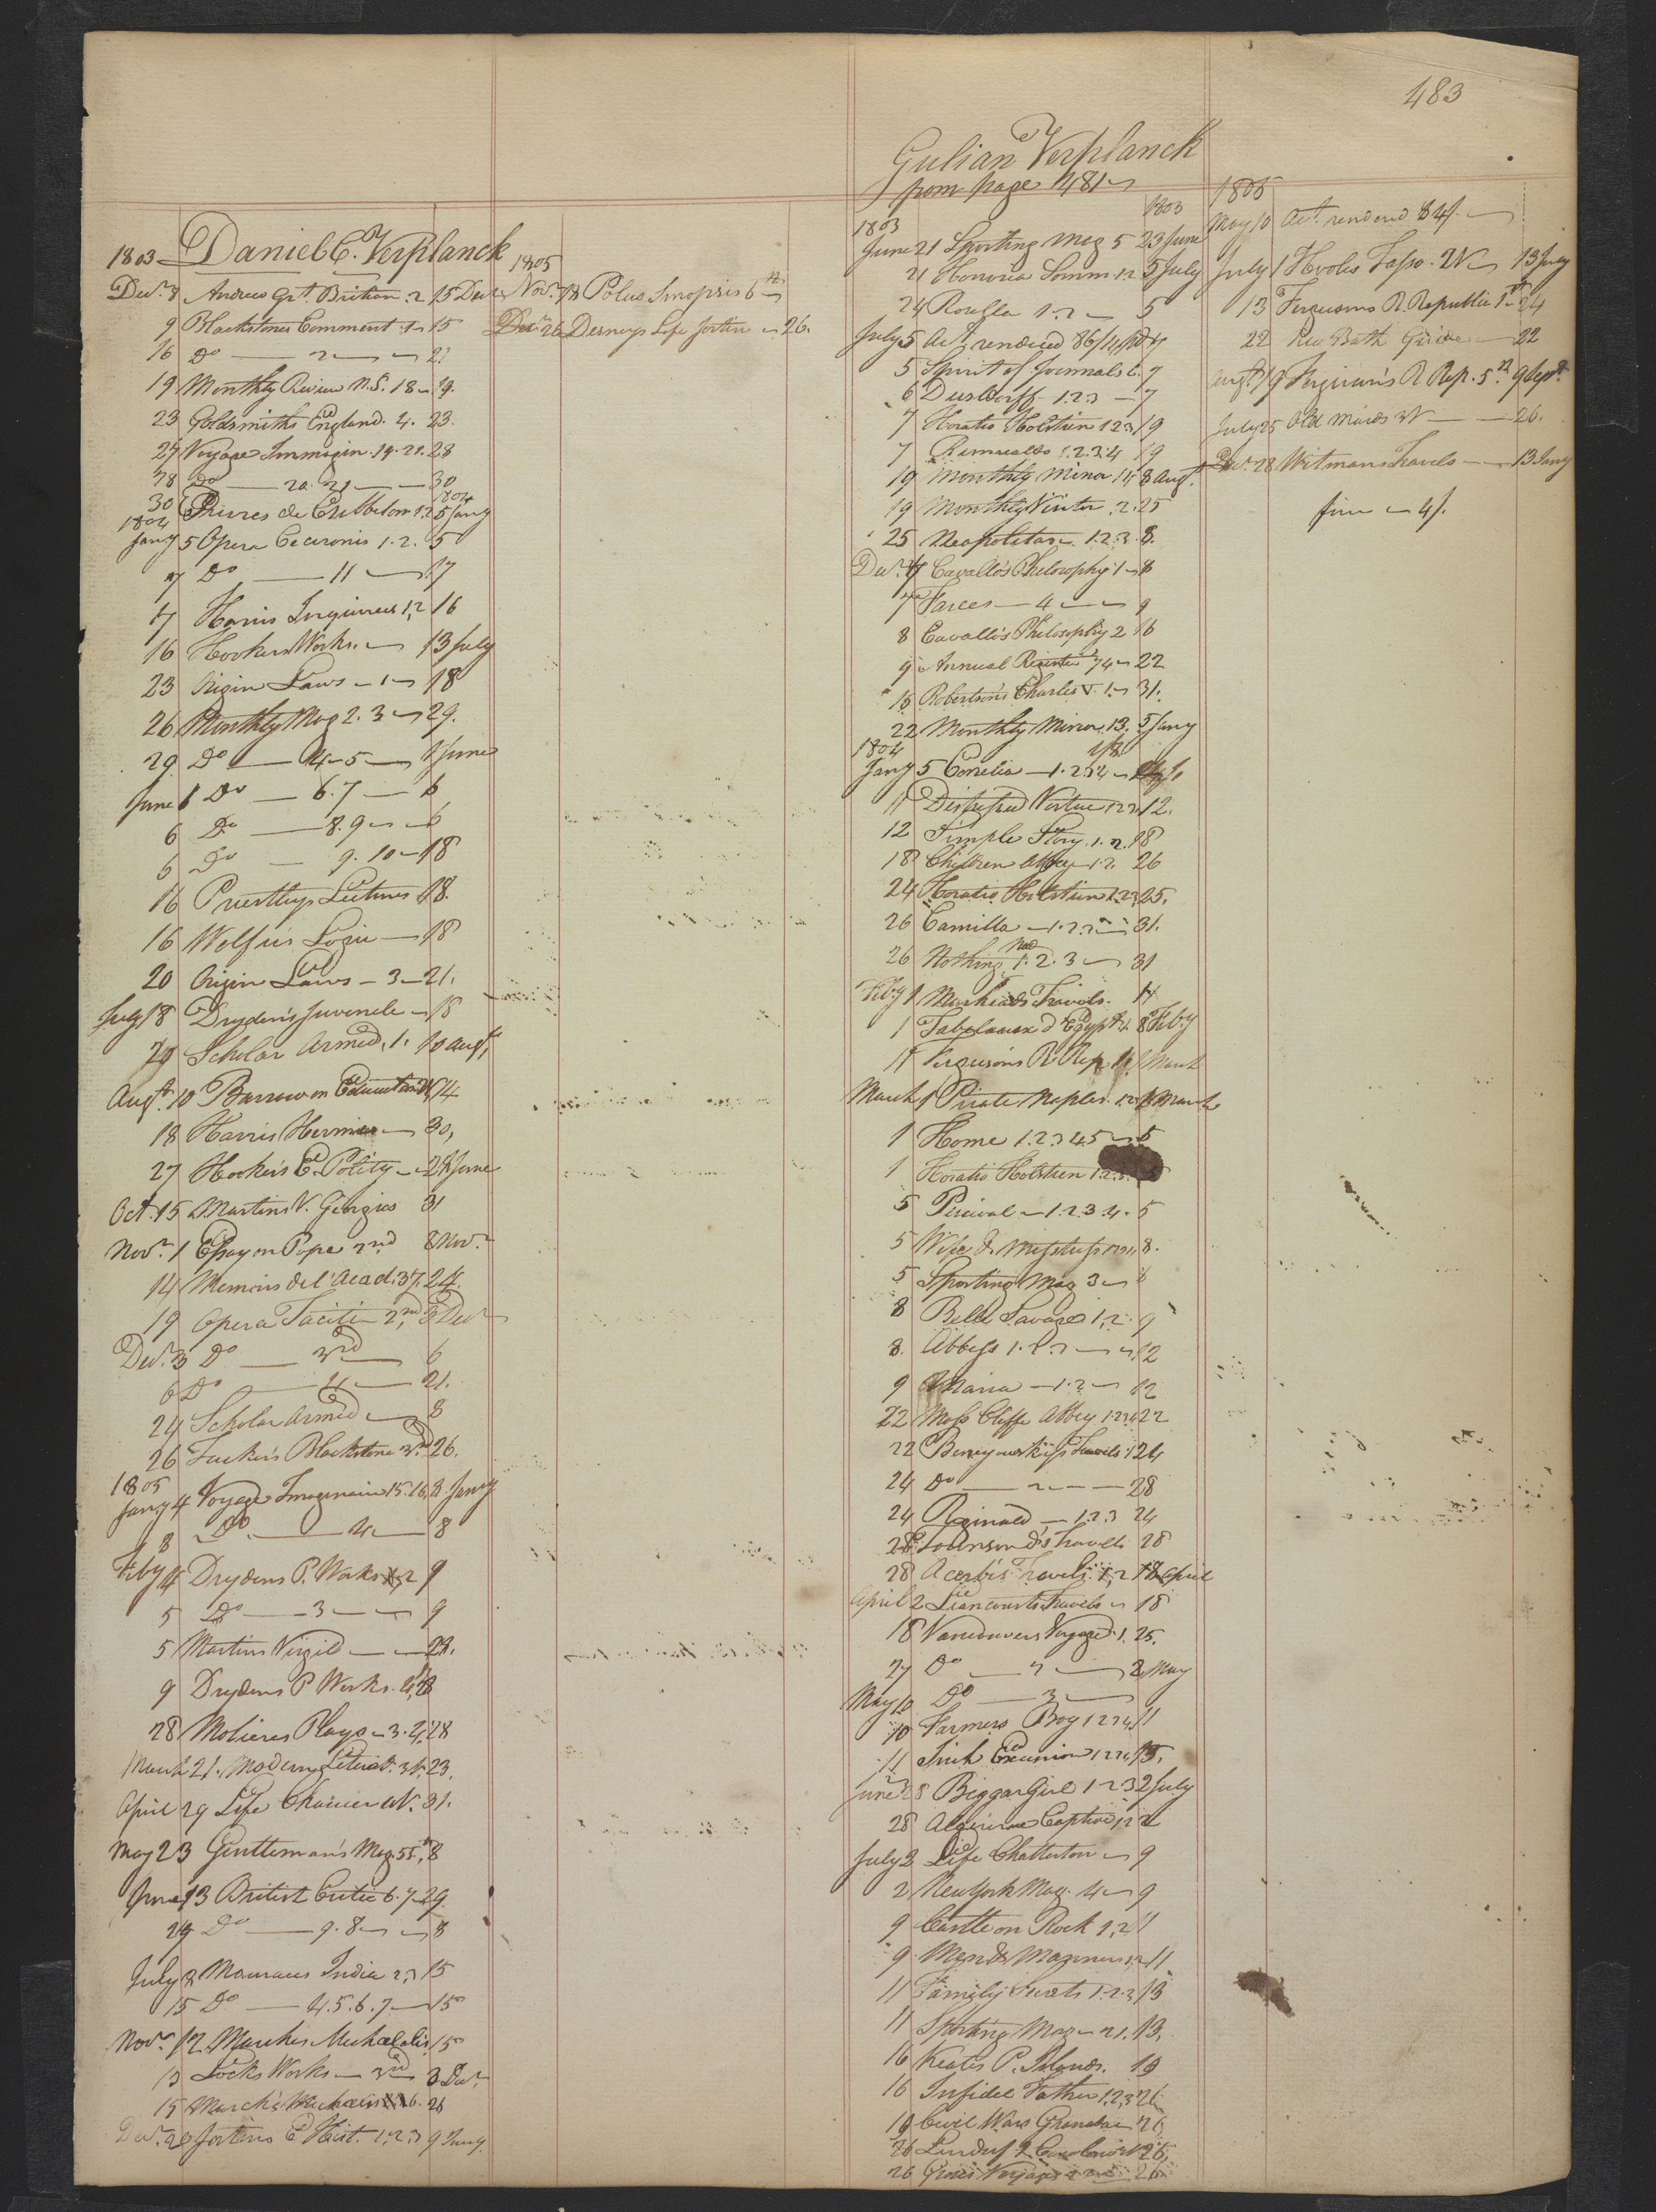 483
Daniel C. Verplanck
1803
Decr. 8 Andrews Grt. Britian . 2 15 Decr
9 Blackstones Comment . 1 15
16 Do 2 21
19 Monthly Review N.S. 18 19.
23 Goldsmiths England. 4. 23.
27 Voyage Immagin . 19. 21. 28
28 Do 20. 21 30
30 Œuvres de Crebbelon 1.2 5 Jany
1804
1804
Jany 5 Opera Ciceronis 1. 2. 5
7 Do 11 17
17 Harris Inquiries 1,2 16
16 Hookers Works. 13 July
23 Origin Laws 1 18
26 Monthly Mag 2. 3 29.
29 Do 4-5 1 June
June 1 Do 6. 7 6
6 Do 8. 9 6
6 Do 9. 10 18
16 Priestleys Lectures 18.
16 Wolfius Logic 18
20 Origin Laws 3 21.
July 18 Drydens Juvenele 18
20 Scholar Armed, 1. 10 Augt
Augt. 10 Barrow on Education 14
18 Harris Hermes 30,
27 Hooker's E. Polity 28 June
Oct. 15 Martins V. Georgics 31
Novr. 1 Essay on Pope 2nd 8 Novr.
14 Memoirs de l'Acad. 37. 24.
19 Opera Taciti 2nd, 3 Decr
Decr. 3 Do 3rd 6
6 Do 4 21.
24 Scholar Armed 8
26 Tucker's Blackstone 3rd 26.
1805
Jany 4 Voyage Imaginaire 15. 16, 8 Jany
8 Do 4 8
Feby 4 Drydens P. Works 2 9
5 Do 3 9
5 Martins Virgil 28.
9 Drydens P Works. 4, 18
28 Molieres Plays 3. 4, 28
March 21. Modern Literat. 3 V. 23.
April 29 Life Chaucer 4V. 31.
May 23 Gentleman's Mag. 55th, 8
June 13 British Critic 6. 7 29.
29 Do 9. 8 8
July 8 Maurices India 2, 3 15
15 Do 4. 5. 6. 7. 15
Novr. 12. Marshes Michaelis 15
13 Locks Works 3rd 3 Decr.
15 Marsh's Michaelis 6. 26
Decr. 20 Jortins E Hist. 1, 2, 3 9 Jany.
1805
Novr. 18 Polus Sinopsis 6th
Decr 26 Desneys Life Jortin 26.
Gulian Verplanck
from page 481
1803 1803
June 21 Sporting Mag 5 23 June
21 Honoria Somm. 1.2 5 July
24 Rosella 1. 2 5
July 5 Act. rendered 86/
5 Spirit of Journals 6. 7
6 Dusldorff 1. 2. 3 7
7 Horatio Holstien 1 2 3 19
7 Rimualdo 1. 2. 3. 4 19
19 Monthly Miror 14 8 Augt.
19 Monthly Visitor . 2. 25
25 Neapolitan 1. 2. 3. 8.
Decr. 7 Cavallo's Philosophy 1 8
7 Farces 4 9
8 Cavallo's Philosophy 2 16
9 Annual Register 74 22
16 Robertson's Charles V. 1. 31.
22 Monthly Miror. 13. 5 Jany
1804
Jany 5 Cornelia 1. 2. 3. 4
11 Distressed Vertue 1. 2. 3. 12.
12 Simple Story. 1. 2. 18
18 Children Abbey 1. 2. 26
24 Horatio Holstien 1. 2. 3. 25.
26 Camilla 1. 2. 3 31.
26 Nothing New 1. 2. 3 31
Feby 1 Murheads Travels. 11
1 Tableaux d'Egypt 1. 8 Feby
11 Ferguson's R. Rep. 1 March
March 1 Pirate Naples. 1. 2 March
1 Home 1. 2. 3 4 5 5
1 Horatio Holstien 1. 2. 3.
5 Percival 1. 2. 3. 4. 5
5 Wife & Mistress 1 2 3 4 8.
5 Sporting Mag 3 6
8 Belle Savage 1, 2 9
8. Abbess 1. 2. 3 12
9 Maria 1. 2 12
22 Moss Cliffe Abbey 1. 2 3 4 22
22 Benyowskis Travels 1 24
24 Do 2 28
24 Reginald 1. 2. 3 24
28 Townsend's Travels 28
28 Acerbi's Travels. 1, 2 18 April
April 2 Liancourts Travels 18
18 Vancouvers Voyage 1. 25.
27 Do 2 2 May
May 10 Do 3
10 Farmers Boy 1 2 3 4, 11
11 Irish Excursion 1 2 3 4, 15,
June 28 Biggar Girl 1. 2. 3 2 July
28 Algerine Captive 1, 2 2
July 2 Life Chatterton 9
2 New York Mag. 4 9
9 Castle on Rock 1, 2 11
9 Men & Manners 1, 2 11
11 Family Secrets 1. 2. 3 13
11 Sporting Mag 21. 13,
16 Keates P. Islands. 19
16 Infidel Father 1, 2, 3 26
19 Civil Wars Granada 26
26
26 26
1805
May 10 Act. renderd 84/.
July 1 Hooles Tasso. 2V 13 July
13 Fergusons R. Republic 1st 24
22 New Bath Guide 22
Augt. 19 Ferguson's R Rep. 5th. 9 Sept.
July 25 Old Maids 3V 26.
Decr. 28 Witmans Travels 13 Jany
fine 4/.